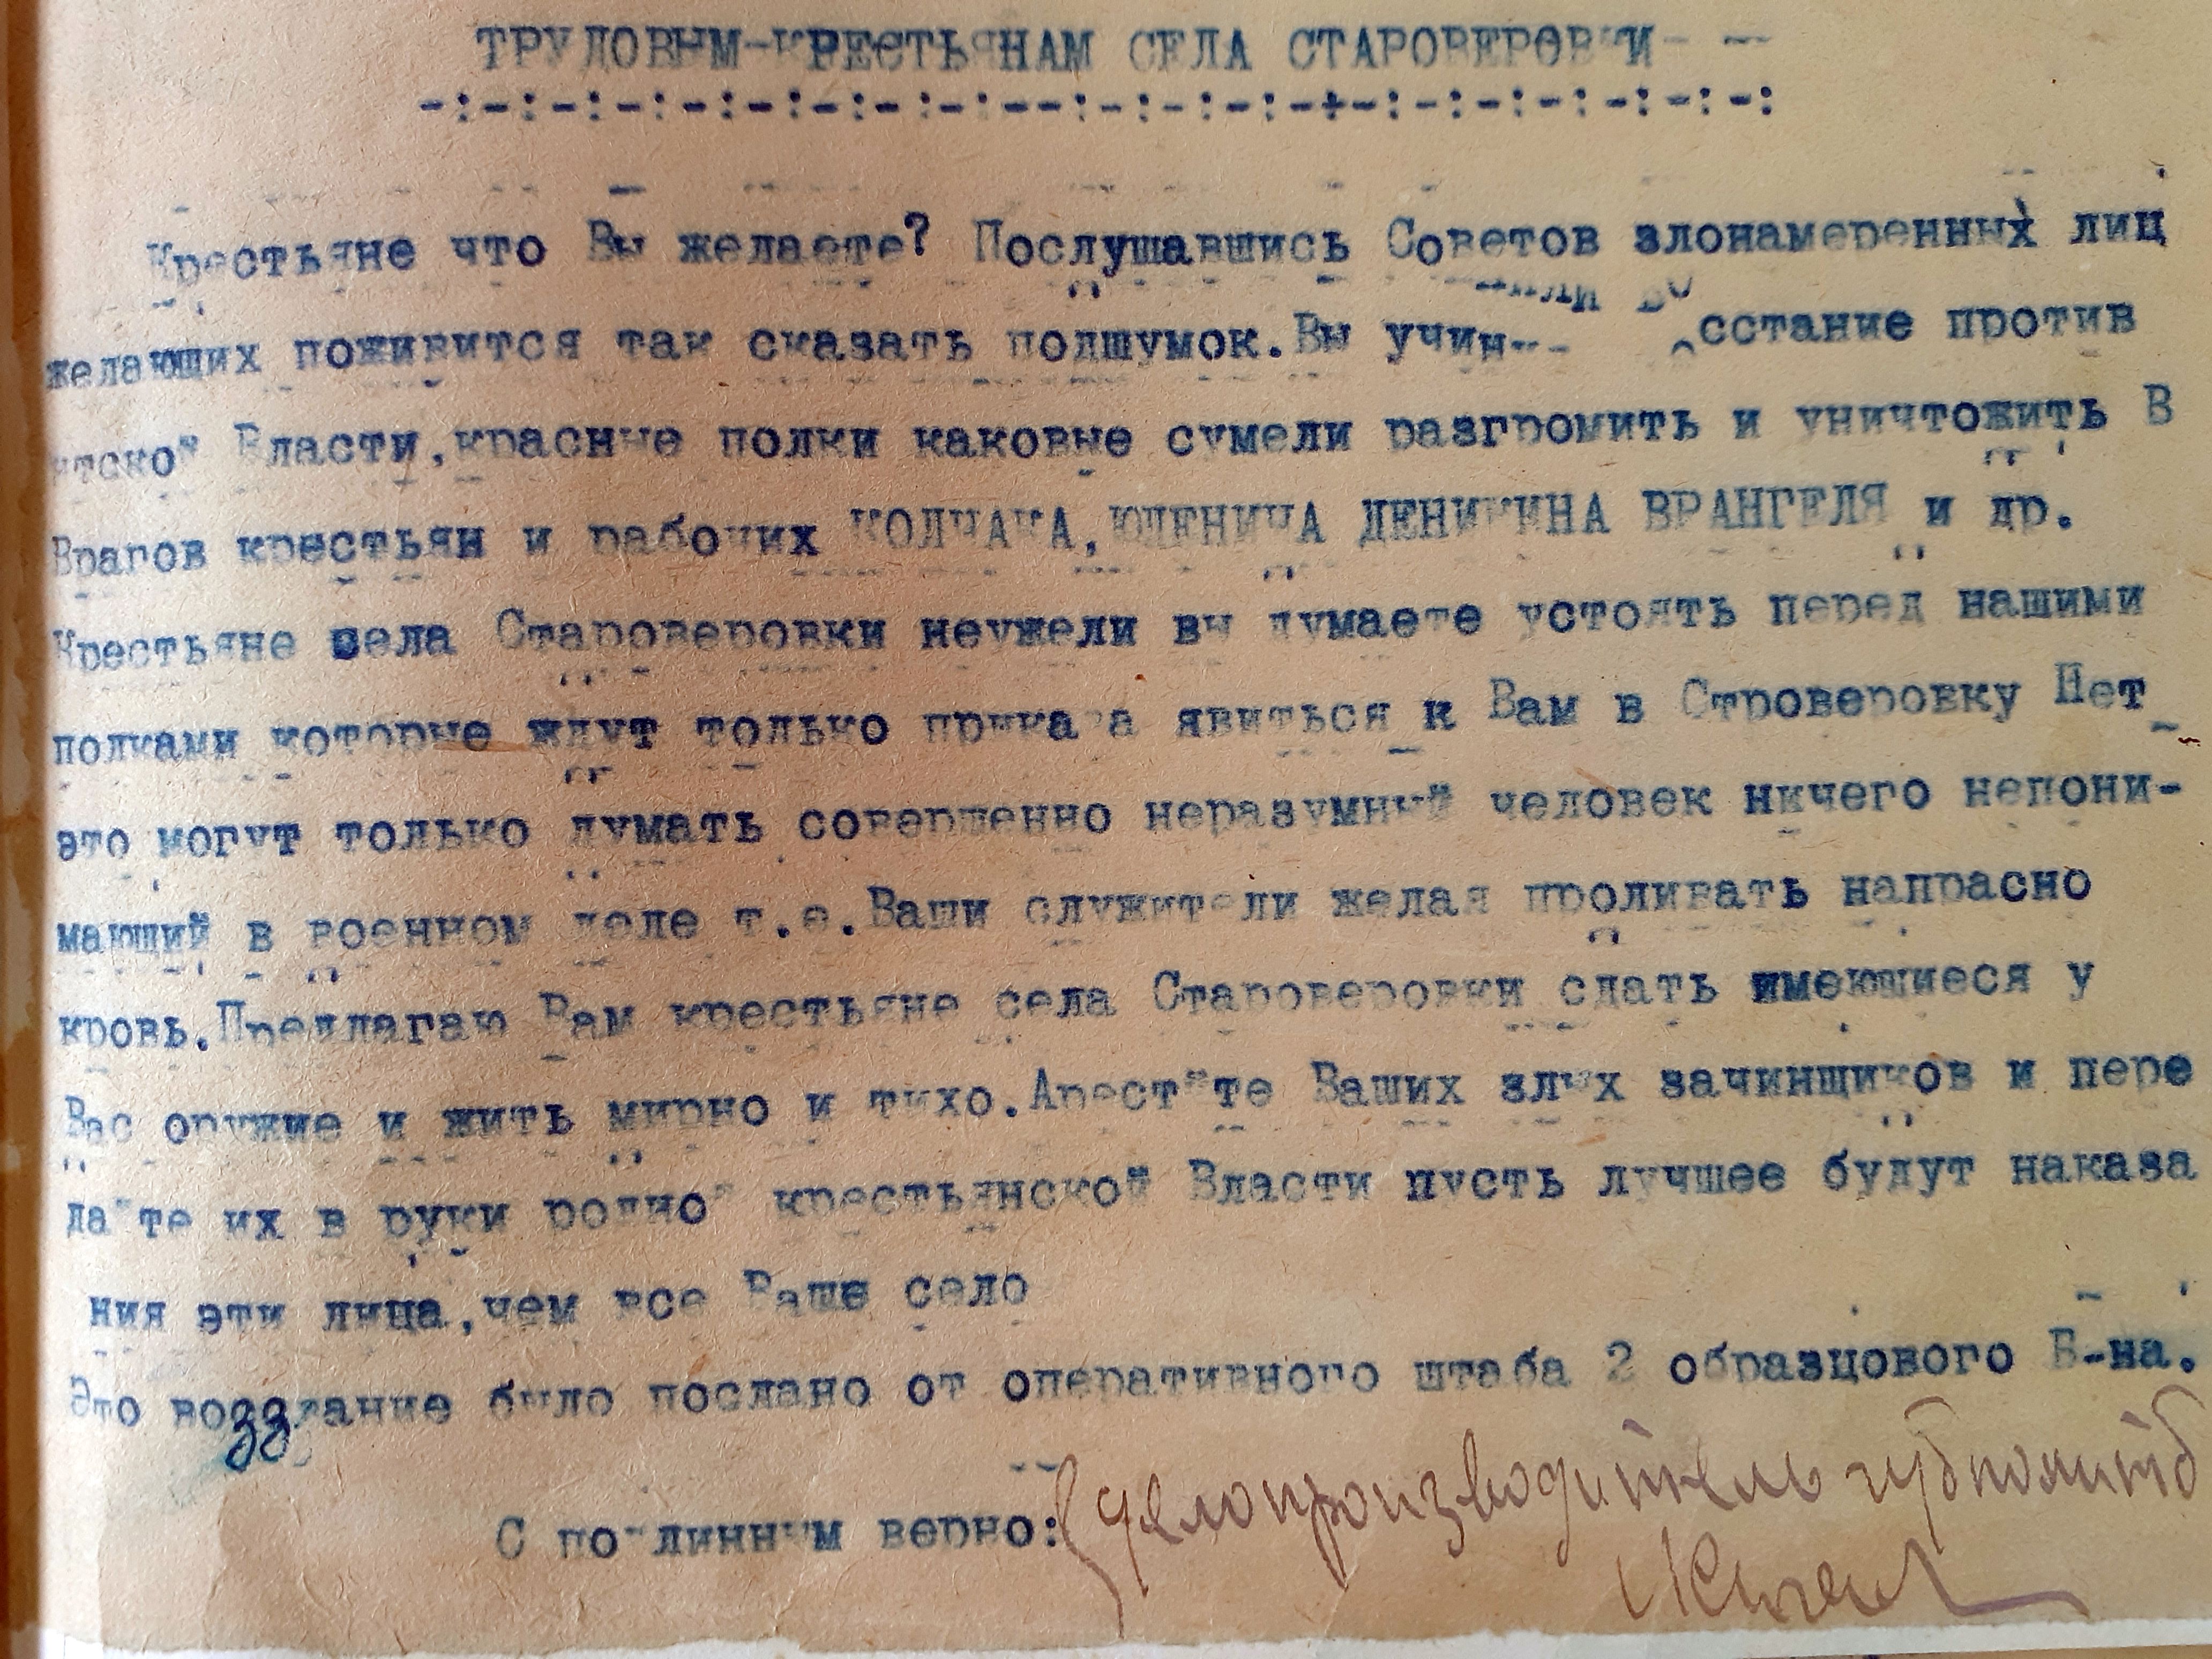 ТРУДОВЫМ-КРЕСТЬЯНАМ СЕЛА СТАРОВЕРОВКИ- -
-:-:-:-:-:-:-:-:--:-:-:-:-+-:-:-:-:-:-:
Крестьяне что Вы желаете? Послушавшись Советов злонамеренных лиц
желающих поживится так сказать подшумок.Вы учинили восстание против
етской Власти,красные полки каковые сумели разгромить и уничтожить В
Врагов крестьян и рабочих КОЛЧАКА,ЮДЕНИЧА ДЕНИКИНА ВРАНГЕЛЯ и др.
Крестьяне села Староверовки неужели вы думаете устоять перед нашими
полками которые ждут только приказа явиться к Вам в Строверовку Нет
это могут только думать совершенно неразумный человек ничего непони-
мающий в военном деле т.е.Ваши служители желая проливать напрасно
кровь.Предлагаю Вам крестьяне села Староверовки сдать имеющиеся у
Вас оружие и жить мирно и тихо.Арестуйте Ваших злых зачинщиков и пере
дайте их в руки родной крестьянской Власти пусть лучшее будут наказа
ния эти лица,чем все Ваше село
Это воззвание было послано от оперативного штаба 2 образцового Б-на.
С подлинным верно: Делопроизводитель